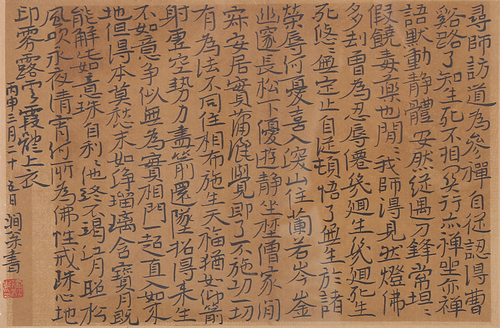 尋師訪道為參禪自從認得曹
谿路了知生死不相關行亦禪坐亦禪
語默動靜體安然縱遇刀鋒常坦〻
假饒毒藥也閒〻我師得見然燈佛
多劫曾為忍辱僊幾迴生幾迴死生
死悠〻無定止自從頓悟了無生於諸
榮辱何憂喜入深山住蘭若岑崟
幽邃長松下優游靜坐野僧家闃
寂安居實蕭灑覺即了不施功一切
有為法不同住相布施生天福猶如仰箭
射虛空勢力盡箭還墜招得來生
不如意爭似無為實相門一超直入如來
地但得本莫愁末如淨瑠璃含寶月既
能解此如意珠自利〻他終不竭江月照松
風吹永夜清宵何所為佛性戒珠心地
印霧露雲霞體上衣
丙申三月二十五日書